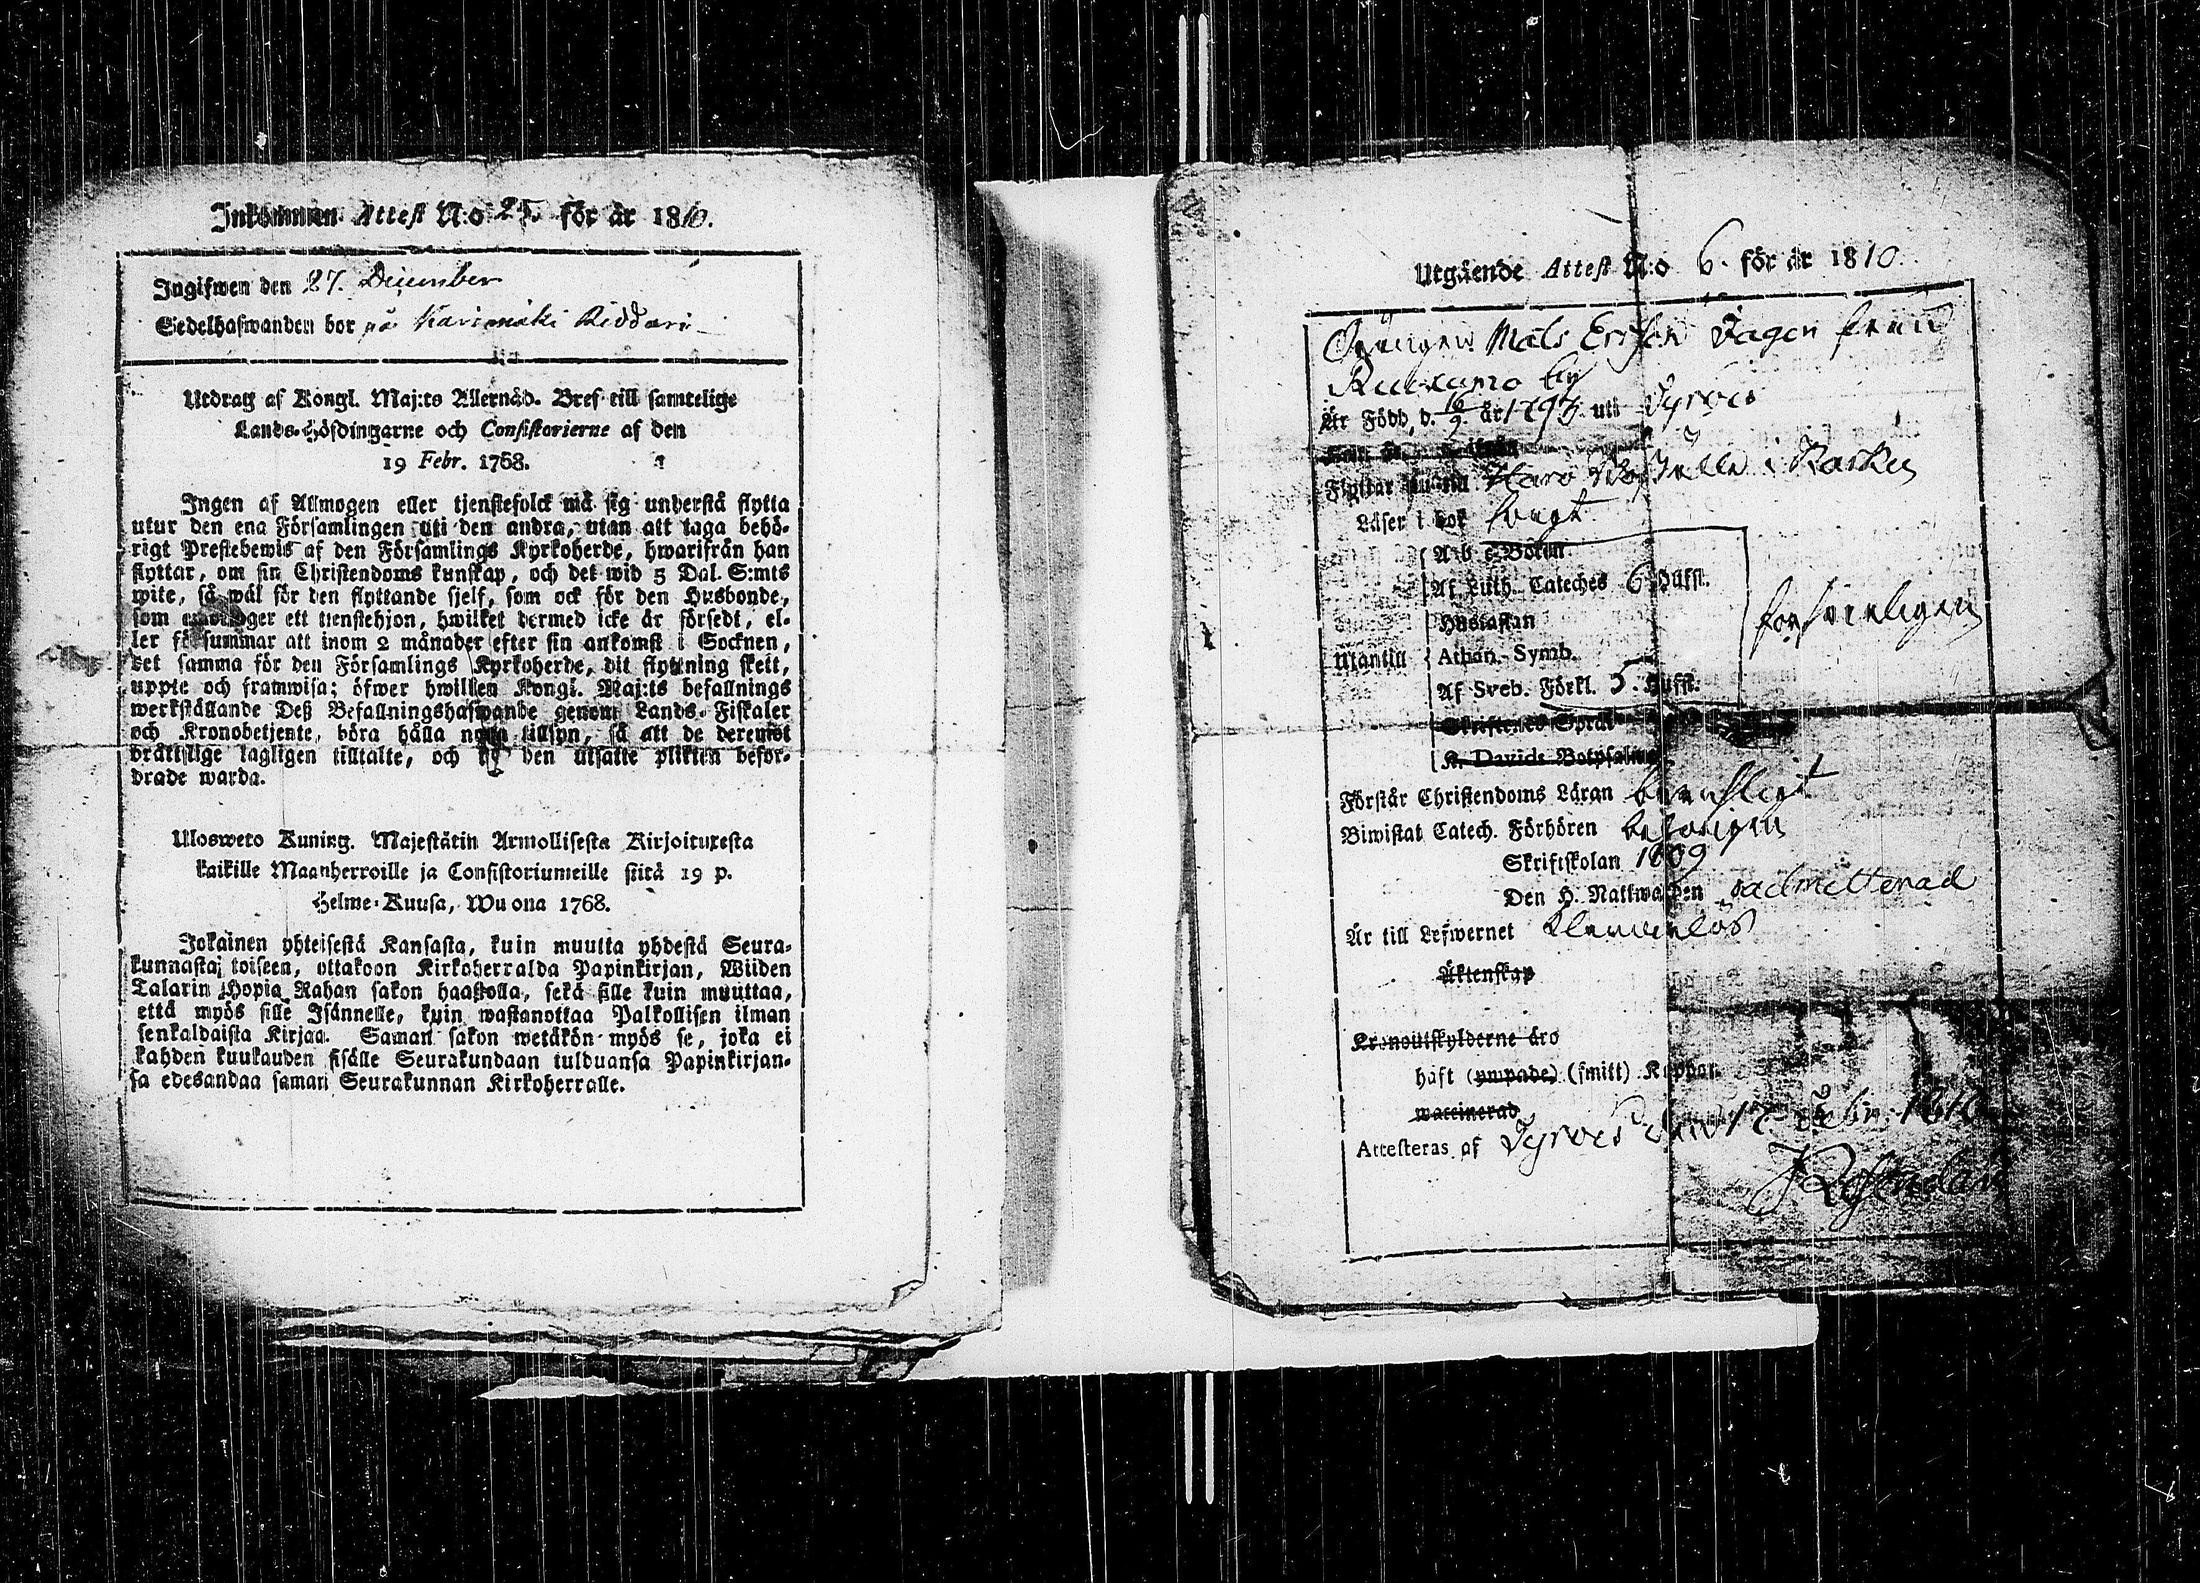 Inkommen Attest N:o 25. för år 1810.
Ingifwen den 27. December
Sedelhafwanden bor på Karimäki Riddari
Utdrag af Kongl. Maj:ts Allernåd. Bref till samtelige
Lands-Höfdingarne och Consistorierne af den
19 Febr. 1768.
Ingen af Allmogen eller tjenstefolck må sig understå flytta
utur den ena Församlingen uti den andra, utan att taga behö-
rigt Prestebewis af den Församlings Kyrkoherde, hwarifrån han
flyttar, om sin Christendoms kunskap, och det wid 5 Dal. S:mts
wite, så wäl för den flyttande sjelf, som ock för den Husbonde,
som ett tienstehjon, hwilket dermed icke är försedt, el-
ler försummar att inom 2 månader efter sin ankomst i Socknen,
det samma för den Församlings Kyrkoherde, dit flyttning skett,
uppte och framwisa; öfwer hwilken Kongl. Maj:ts befallnings
werkställande Deß Befallningshafwande genom Lands-Fiskaler
och Kronobetjente, böra hålla noga tillsyn, så att de deremot
bråttslige lagligen tilltalte, och till den utsatte plikten befor-
drade warda.
Ulosweto Kuning. Majestätin Armollisesta Kirjoituxesta
kaikille Maanherroille ja Consistoriumeille siitä 19 p.
Helme-Kuusa, Wuona 1768.
Jokainen yhteisestä Kansasta, kuin muutta yhdestä Seura-
kunnasta toiseen, ottakoon Kirkoherralda Papinkirjan, Wiiden
Talarin Hopia Rahan sakon haastolla, sekä sille kuin muuttaa,
että myös sille Isännelle, kuin wastanottaa Palkollisen ilman
senkaldaista Kirjaa. Saman sakon wetäkön myös se, joka ei
kahden kuukauden sisälle Seurakundaan tulduansa Papinkirjan-
sa edesandaa saman Seurakunnan Kirkoherralle.
Utgående Attest N:o 6. för år 1810.
Mats Ersson
by
Är Född, d. 16/9 år 1793 uti Tyrvis
Flyttar nu till i
Läser i bok
A-b-c-Boken
Af Luth. Cateches 6 Hufst.
Hustaflan
Utantill Athan. Symb.
Af Sveb. Förkl. 5. Hufst.
Skriftenes Språk
K. Davids Botpsalmer
Förstår Christendoms Läran
Biwistat Catech. Förhören
Skriftskolan 1809
Den H. Nattwarden admitterad
Är till Lefwernet
Äktenskap
Kronoutskylderne äro
haft (ympade) (smitt) Koppor.
waccinerad
Attesteras af Tyrvis den 17 Febr. 1810